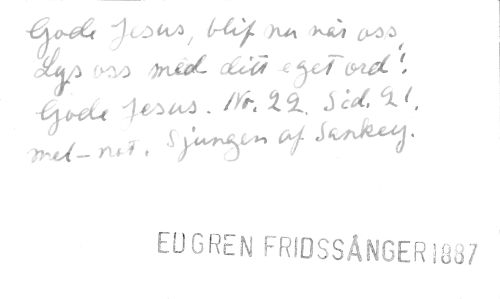 Gode Jesus, blif nu när oss,
Lys oss med ditt eget ord!
Gode Jesus. Nr. 22. Sid. 21.
mel-not. Sjungen af Sankey.
EDGREN FRIDSSÅNGER 1887